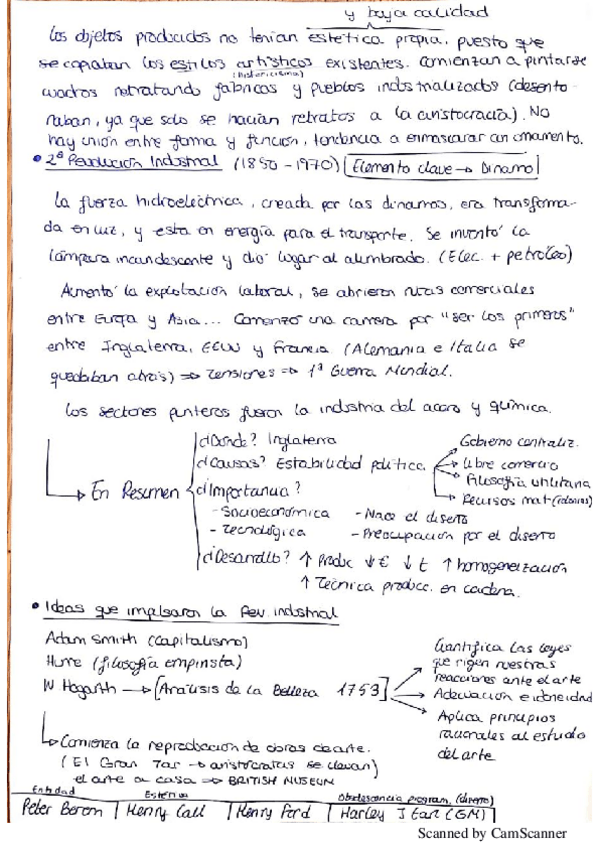 y baja calidad
Los objetos producidos no tenían estética propia, puesto que
se copiaban los estilos artísticos existentes. Comienzan a pintarse
(historicismo)
cuadros retratando fábricas y pueblos industrializados (desento-
naban, ya que solo se hacían retratos a la aristocracia). No
hay unión entre forma y función, tendencia a enmascarar con ornamento.
• 2ª Revolución Industrial (1850-1970) Elemento clave → Dinamo
La fuerza hidroeléctrica, creada por las dinamos, era transforma-
da en luz, y esta en energía para el transporte. Se inventó la
lámpara incandescente y dio lugar al alumbrado. (Elec. + petróleo)
Aumentó la explotación laboral, se abrieron rutas comerciales
entre Europa y Asia... Comenzó una carrera por "ser los primeros"
entre Inglaterra, EEUU y Francia (Alemania e Italia se
quedaban atrás) ⇒ Tensiones ⇒ 1ª Guerra Mundial.
Los sectores punteros fueron la industria del acero y química.
→ En Resumen
¿Dónde? Inglaterra
¿Causas? Estabilidad política
Gobierno centraliz.
Libre comercio
Filosofía utilitaria
Recursos mat (colonias)
¿Importancia?
- Socioeconómica - Nace el diseño
- Tecnológica - Preocupación por el diseño
¿Desarrollo? ↑ Produc ↓ € ↓ t ↑ homogeneización
↑ Técnica producc. en cadena.
• Ideas que impulsaron la Rev. industrial
Adam Smith (capitalismo)
Hume (filosofía empirista)
W Hogarth → [Análisis de la Belleza 1753]
Cuantifica las leyes
que rigen nuestras
reacciones ante el arte
Adecuación e idoneidad
Aplica principios
racionales al estudio
del arte
→ Comienza la reproducción de obras de arte.
(El Gran Tour → aristócratas se llevan)
el arte a casa ⇒ BRITISH MUSEUM
Entidad Estética Obsolescencia program. (diseño)
Peter Beren | Henry Call | Henry Ford | Harley J Earl (GM)
Scanned by CamScanner